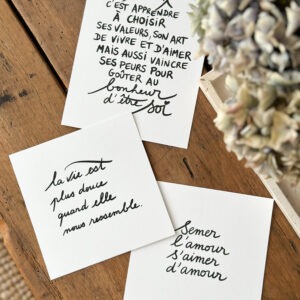 C'EST APPRENDRE
À CHOISIR
SES VALEURS, SON ART
DE VIVRE ET D'AIMER
MAIS AUSSI VAINCRE
SES PEURS POUR
GOÛTER AU
bonheur
d'être soi
la vie est
plus douce
quand elle
nous ressemble.
Semer
l'amour
s'aimer
d'amour